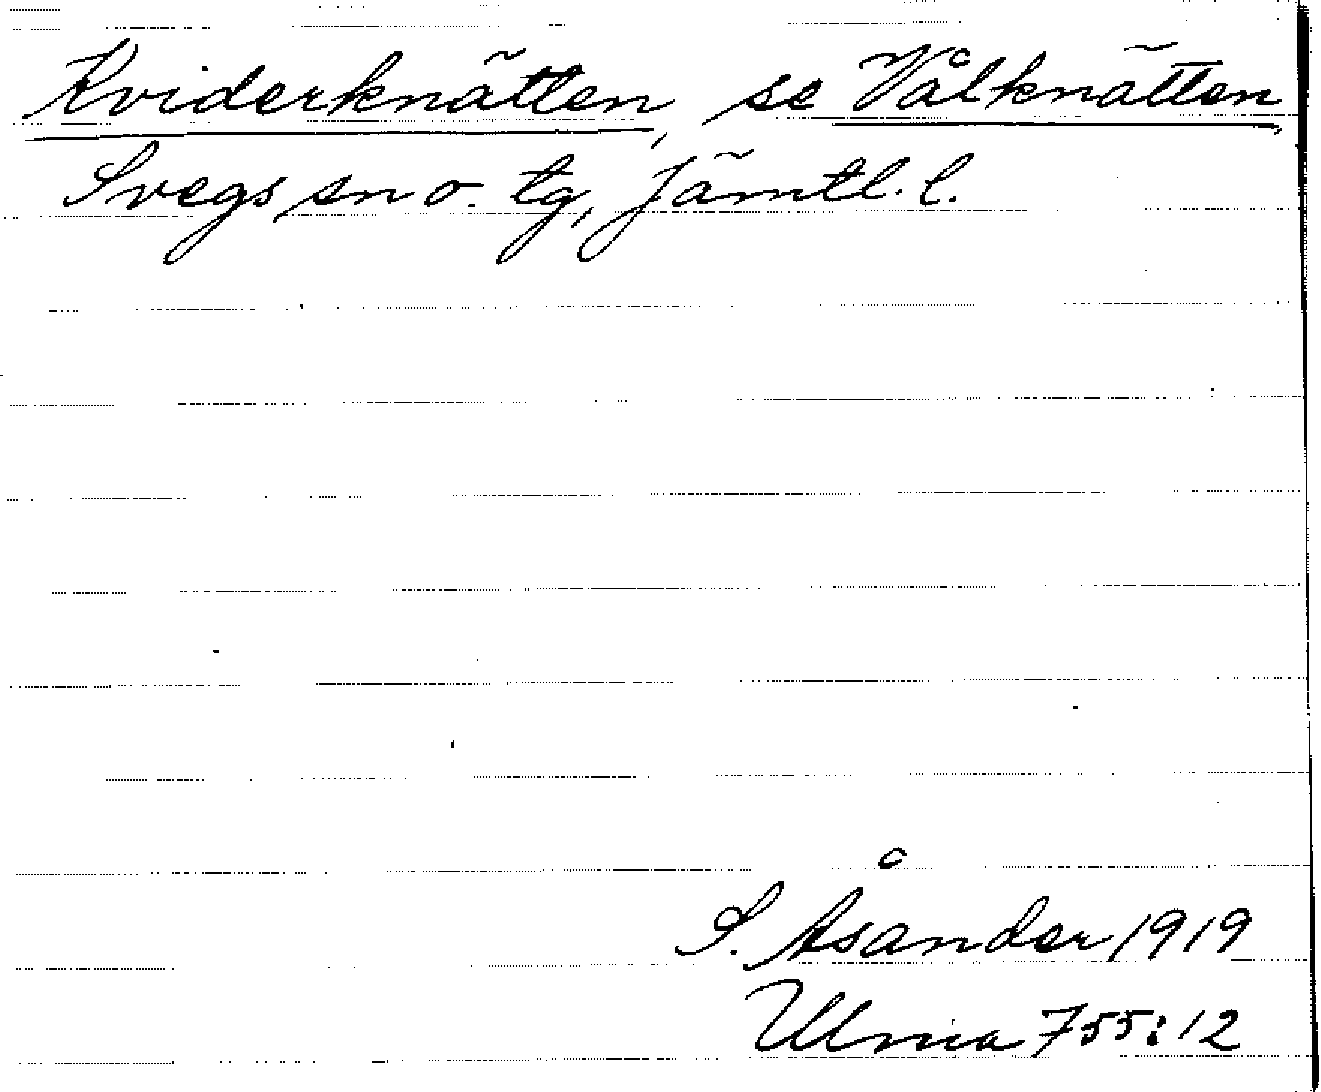 Kviderknätten, se Vålknätten,
Svegs sn o. tg, Jämtl. l.
S. Åsander 1919
Ulma 755:12